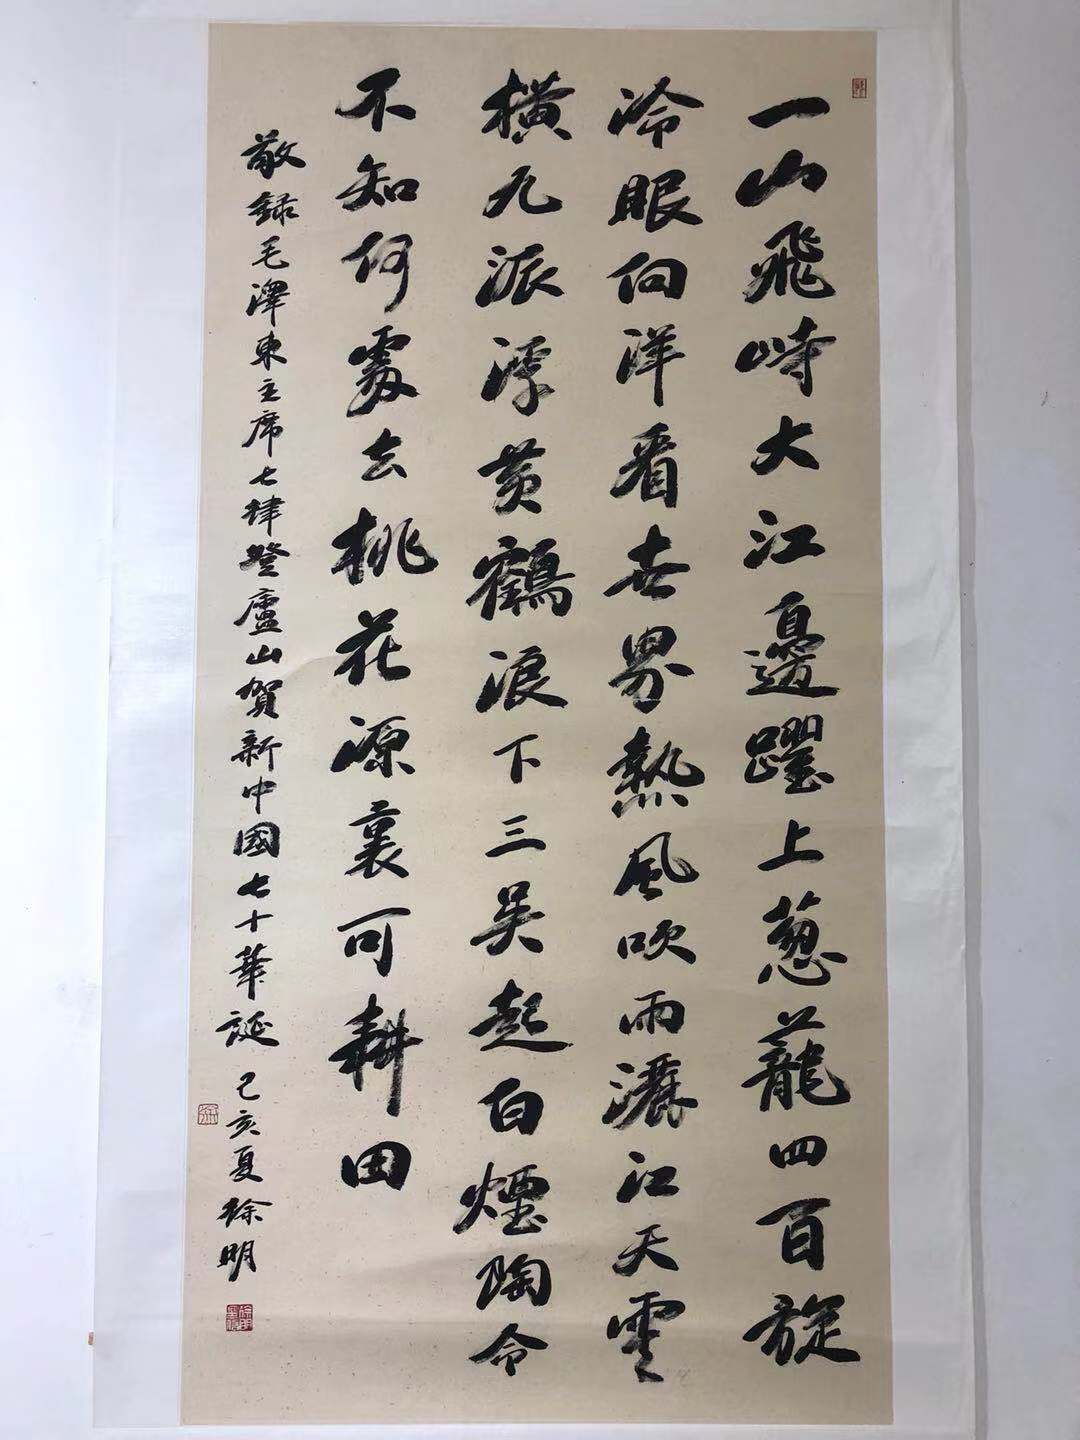 一山飛峙大江邊躍上蔥蘢四百旋
冷眼向洋看世界熱風吹雨灑江天雲
橫九派浮黃鶴浪下三吳起白煙陶令
不知何處去桃花源裏可耕田
敬錄毛澤東主席七律登廬山賀新中國七十華誕 己亥夏徐明